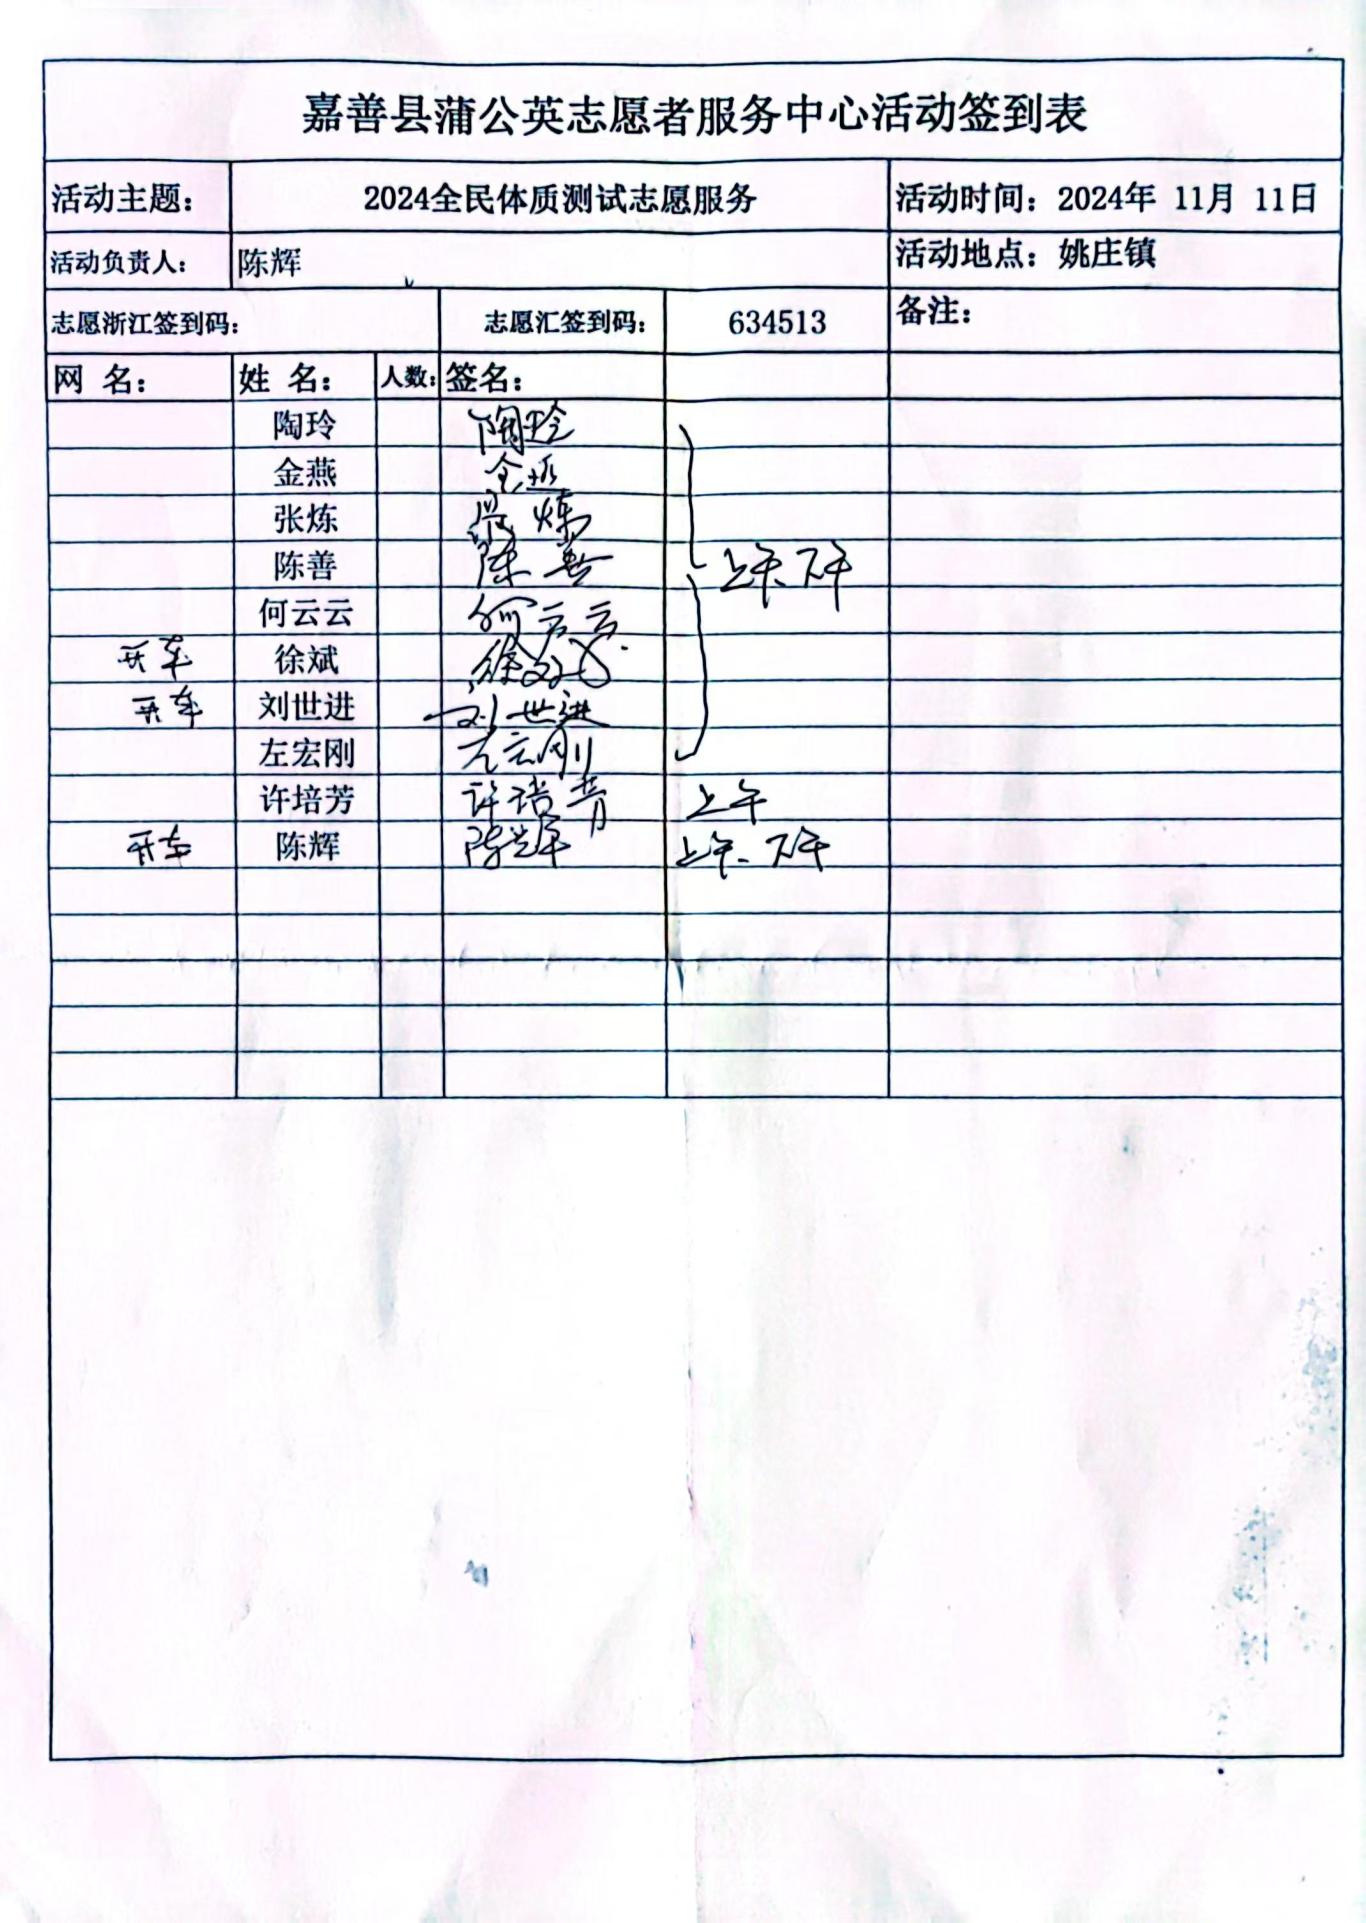 嘉善县蒲公英志愿者服务中心活动签到表
活动主题： 2024全民体质测试志愿服务 活动时间：2024年 11月 11日
活动负责人： 陈辉 活动地点：姚庄镇
志愿浙江签到码： 志愿汇签到码： 634513 备注：
网 名： 姓 名： 人数： 签名：
陶玲 陶玲
金燕 金燕
张炼 张炼
陈善 陈善 上午、下午
何云云 何云云
开车 徐斌 徐斌
开车 刘世进 刘世进
左宏刚 左宏刚
许培芳 许培芳 上午
开车 陈辉 陈辉 上午、下午